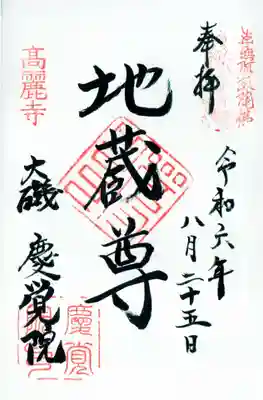 奉拝
令和六年
八月二十五日
地蔵尊
高麗寺
大磯 慶覚院
慶覚